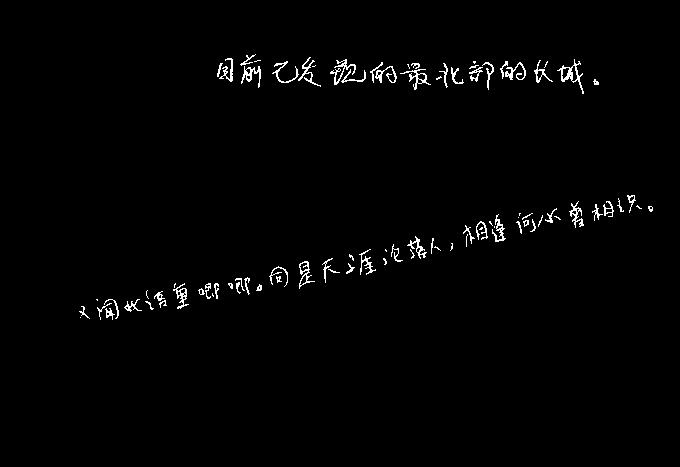 目前已发现的最北部的长城。
又闻此语重唧唧。同是天涯沦落人，相逢何必曾相识。